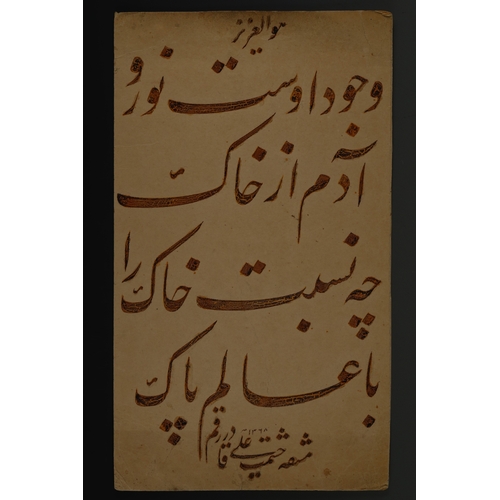 هوالعزیز
وجود اوست نور و
آدم از خاک
چه نسبت خاک را
با عالم پاک
مشقه حشمت علی قادر رقم ۱۳۶۵